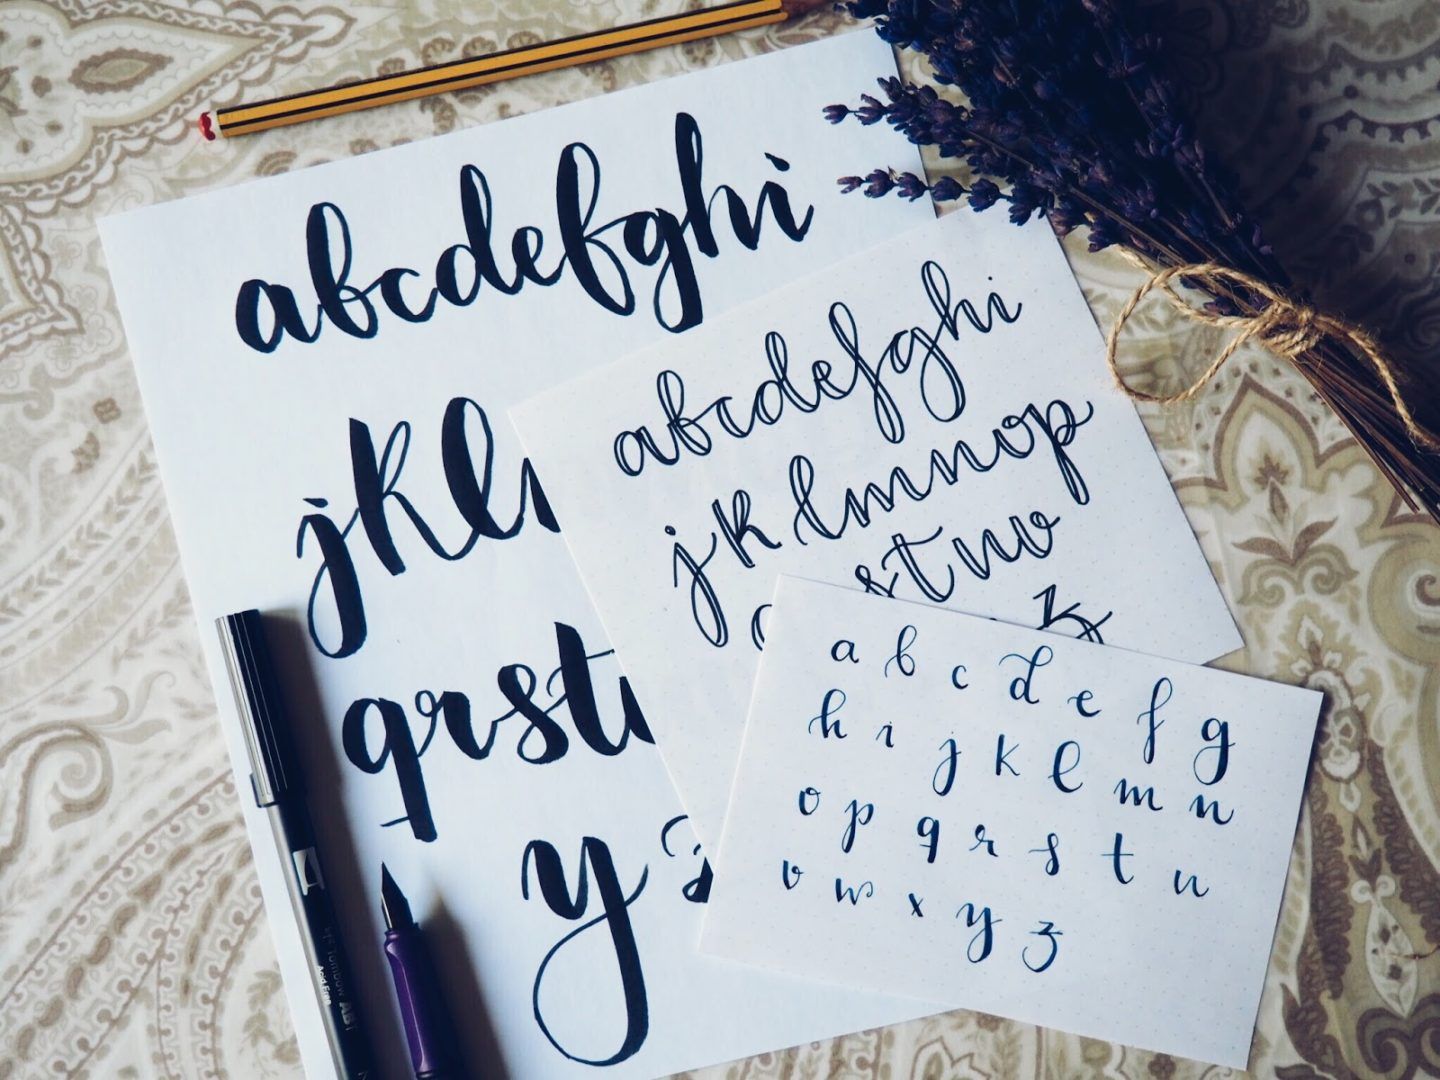 abcdefghi
jkl
qrst
y z
abcdefghi
jklmnop
stuv
z
a b c d e f g
h i j k l m n
o p q r s t u
v w x y z
Tombow AB
Acid Free